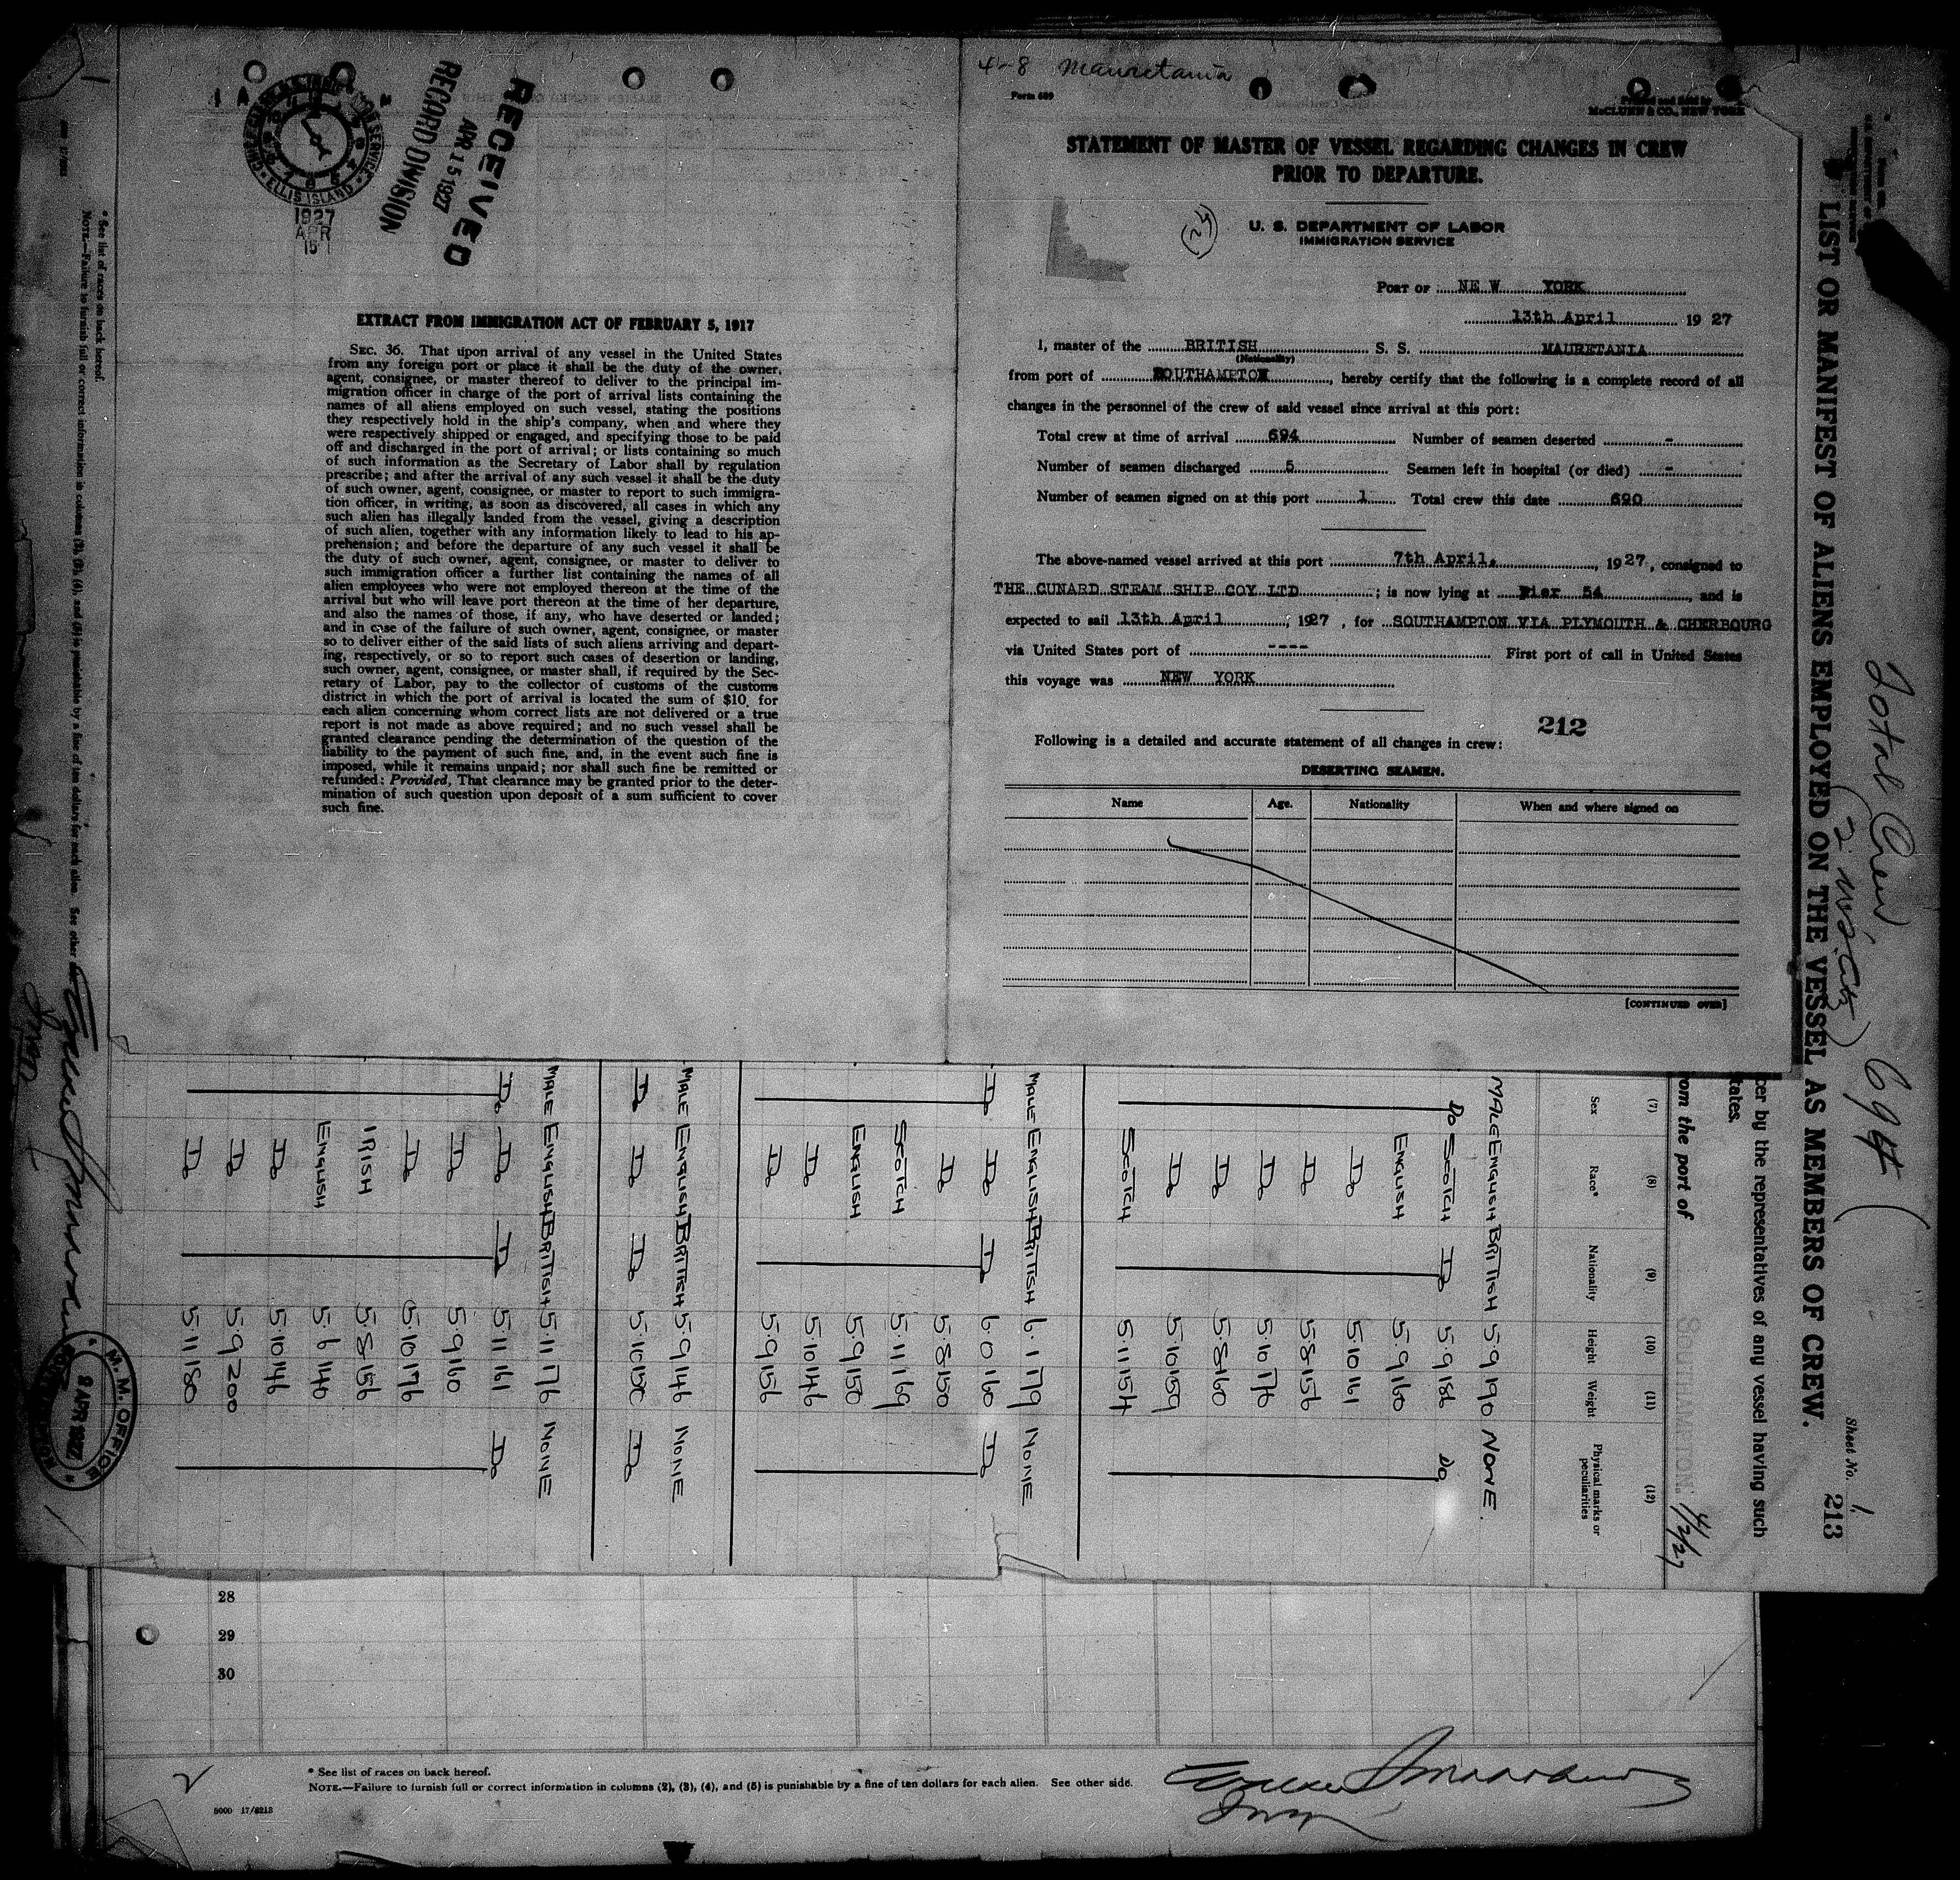 4-8 Mauretania
Form 689
McCLUNN & CO., NEW YORK
STATEMENT OF MASTER OF VESSEL REGARDING CHANGES IN CREW
PRIOR TO DEPARTURE.
U. S. DEPARTMENT OF LABOR
IMMIGRATION SERVICE
PORT OF NEW YORK
13th April 1927
I, master of the BRITISH S. S. MAURETANIA
(Nationality)
from port of SOUTHAMPTON, hereby certify that the following is a complete record of all
changes in the personnel of the crew of said vessel since arrival at this port:
Total crew at time of arrival 694 Number of seamen deserted -
Number of seamen discharged 5 Seamen left in hospital (or died) -
Number of seamen signed on at this port 1 Total crew this date 690
The above-named vessel arrived at this port 7th April, 1927, consigned to
THE CUNARD STEAM SHIP COY LTD; is now lying at Pier 54, and is
expected to sail 13th April, 1927, for SOUTHAMPTON VIA PLYMOUTH & CHERBOURG
via United States port of ---- First port of call in United States
this voyage was NEW YORK
212
Following is a detailed and accurate statement of all changes in crew:
DESERTING SEAMEN.
Name Age. Nationality When and where signed on
[CONTINUED OVER]
ELLIS ISLAND
1927
APR
15
RECEIVED
APR 15 1927
RECORD DIVISION
EXTRACT FROM IMMIGRATION ACT OF FEBRUARY 5, 1917
SEC. 36. That upon arrival of any vessel in the United States
from any foreign port or place it shall be the duty of the owner,
agent, consignee, or master thereof to deliver to the principal im-
migration officer in charge of the port of arrival lists containing the
names of all aliens employed on such vessel, stating the positions
they respectively hold in the ship's company, when and where they
were respectively shipped or engaged, and specifying those to be paid
off and discharged in the port of arrival; or lists containing so much
of such information as the Secretary of Labor shall by regulation
prescribe; and after the arrival of any such vessel it shall be the duty
of such owner, agent, consignee, or master to report to such immigra-
tion officer, in writing, as soon as discovered, all cases in which any
such alien has illegally landed from the vessel, giving a description
of such alien, together with any information likely to lead to his ap-
prehension; and before the departure of any such vessel it shall be
the duty of such owner, agent, consignee, or master to deliver to
such immigration officer a further list containing the names of all
alien employees who were not employed thereon at the time of the
arrival but who will leave port thereon at the time of her departure,
and also the names of those, if any, who have deserted or landed;
and in case of the failure of such owner, agent, consignee, or master
so to deliver either of the said lists of such aliens arriving and depart-
ing, respectively, or so to report such cases of desertion or landing,
such owner, agent, consignee, or master shall, if required by the Sec-
retary of Labor, pay to the collector of customs of the customs
district in which the port of arrival is located the sum of $10 for
each alien concerning whom correct lists are not delivered or a true
report is not made as above required; and no such vessel shall be
granted clearance pending the determination of the question of the
liability to the payment of such fine, and, in the event such fine is
imposed, while it remains unpaid; nor shall such fine be remitted or
refunded: Provided, That clearance may be granted prior to the deter-
mination of such question upon deposit of a sum sufficient to cover
such fine.
Total Crew 694
Sheet No. 1
213
LIST OR MANIFEST OF ALIENS EMPLOYED ON THE VESSEL AS MEMBERS OF CREW.
cer by the representatives of any vessel having such
tates.
rom the port of SOUTHAMPTON. 4/2/27
(7) (8) (9) (10) (11) (12)
Sex Race* Nationality Height Weight Physical marks or peculiarities
MALE ENGLISH BRITISH 5.9 190 NONE.
Do SCOTCH Do 5.9 186 Do
ENGLISH 5.9 160
Do 5.10 161
Do 5.8 156
Do 5.10 176
Do 5.8 160
Do 5.10 159
SCOTCH 5.11 154
MALE ENGLISH BRITISH 6.1 179 NONE
Do Do Do 6.0 160 Do
Do 5.8 150
SCOTCH 5.11 169
ENGLISH 5.9 150
Do 5.10 146
Do 5.9 156
MALE ENGLISH BRITISH 5.9 146 NONE
Do Do Do 5.10 150 Do
MALE ENGLISH BRITISH 5.11 176 NONE
Do Do Do 5.11 161 Do
Do 5.9 160
Do 5.10 176
IRISH 5.8 156
ENGLISH 5.6 140
Do 5.10 146
Do 5.9 200
Do 5.11 180
* See list of races on back hereof.
NOTE.—Failure to furnish full or correct information in columns (2), (3), (4), and (5) is punishable by a fine of ten dollars for each alien. See other
M. M. OFFICE
8 APR 1927
28
29
30
* See list of races on back hereof.
NOTE.—Failure to furnish full or correct information in columns (2), (3), (4), and (5) is punishable by a fine of ten dollars for each alien. See other side.
5000 17/8213